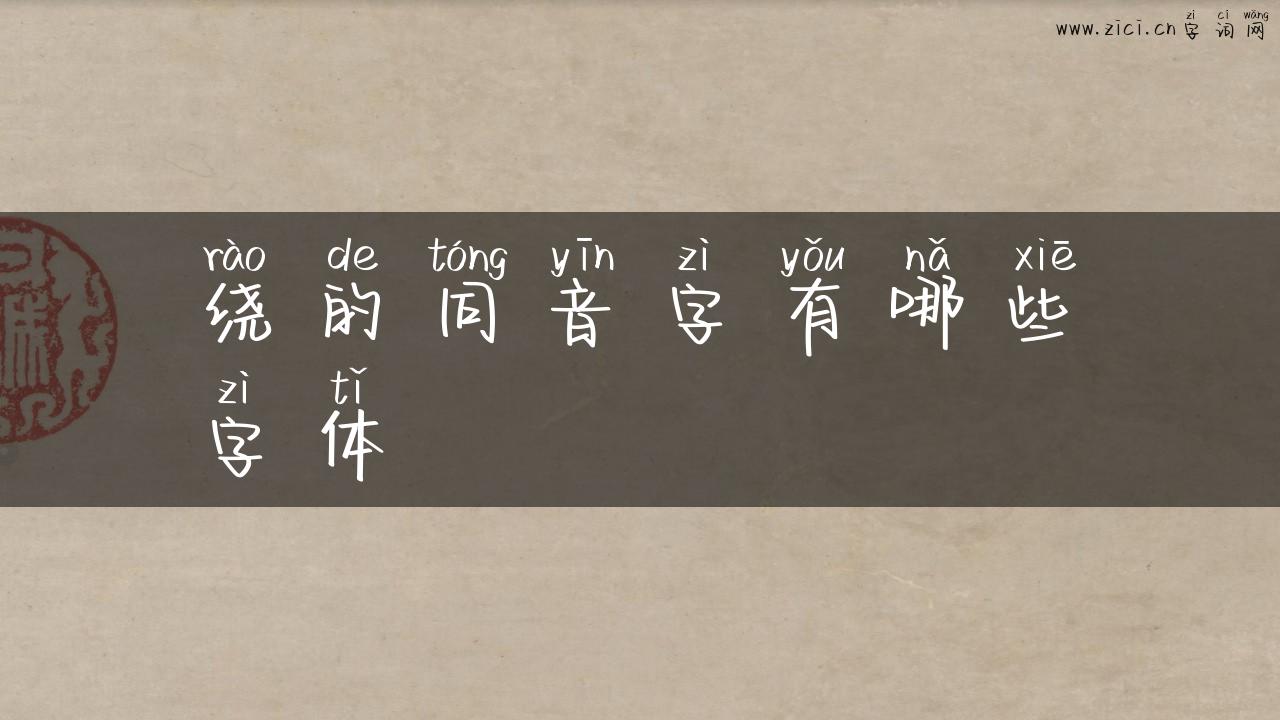 zì cí wǎng
www.zici.cn 字词网
rào de tóng yīn zì yǒu nǎ xiē
绕的同音字有哪些
zì tǐ
字体